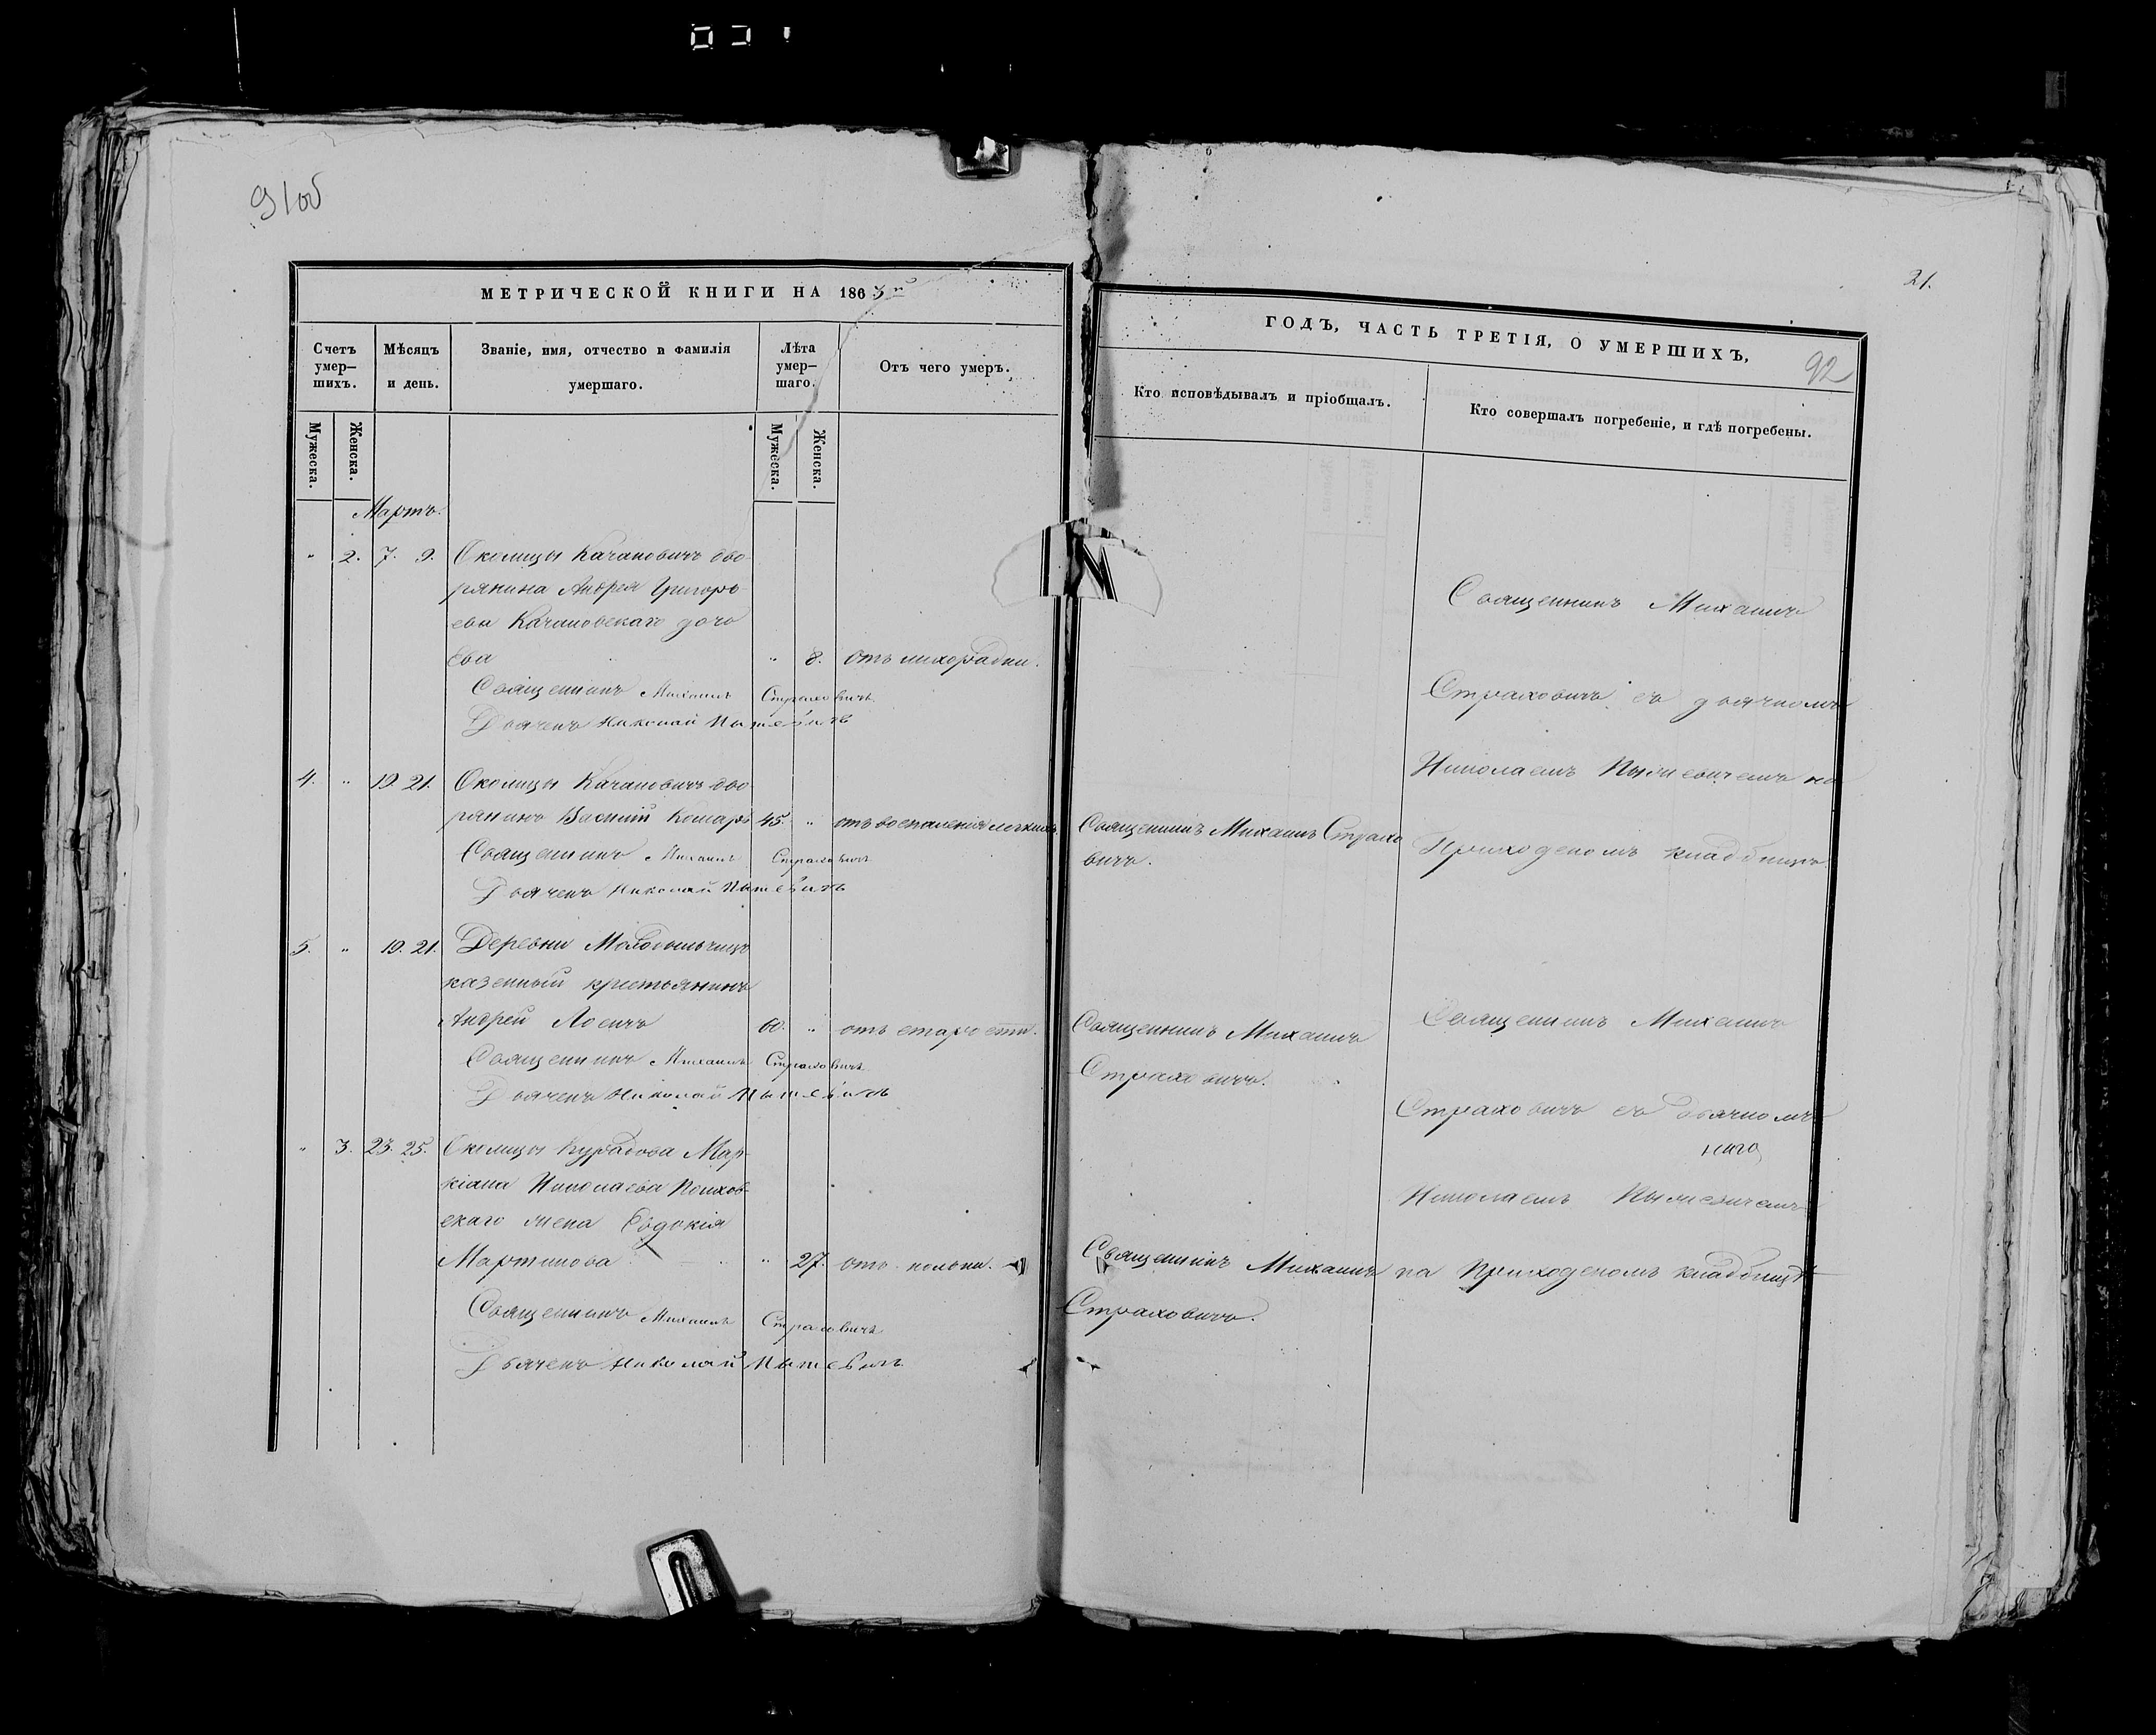 91об
МЕТРИЧЕСКОЙ КНИГИ НА 1863
Счетъ умер-шихъ.
Мѣсяцъ и день.
Званіе, имя, отчество и фамилія умершаго.
Лѣта умер-шаго.
Отъ чего умеръ.
Мужеска.
Женска.
Мужеска.
Женска.
Мартъ.
" 2. 7. 9. Околицы Качановичъ дво-
рянина Андрея Григорь-
евы Качановскаго дочь
Ева " 8. отъ лихорадки.
Священникъ Михаилъ Страховичъ
Дьячекъ Николай
4. " 19. 21. Околицы Качановичъ дво
рянинъ Василій Комаръ 45. " отъ воспаленія легкихъ.
Священникъ Михаилъ Страховичъ
Дьячекъ Николай
5. " 19. 21. Деревни
казенный крестьянинъ
Андрей 60. " отъ старости.
Священникъ Михаилъ Страховичъ
Дьячекъ Николай
" 3. 23. 25. Околицы Мар-
кіана Николаева
скаго жена Евдокія
Мартинова " 27. отъ
Священникъ Михаилъ Страховичъ
Дьячекъ Николай
21.
ГОДЪ, ЧАСТЬ ТРЕТІЯ, О УМЕРШИХЪ,
92
Кто исповѣдывалъ и пріобщалъ.
Кто совершалъ погребеніе, и гдѣ погребены.
Священникъ Михаилъ
Страховичъ съ дьячкомъ
Николаемъ на
Приходскомъ кладбищѣ
Священникъ Михаилъ Страхо
вичъ.
Священникъ Михаилъ
Страховичъ.
Священникъ Михаилъ
Страховичъ съ дьячкомъ
Николаемъ
на Приходскомъ кладбищѣ
Священникъ Михаилъ
Страховичъ.